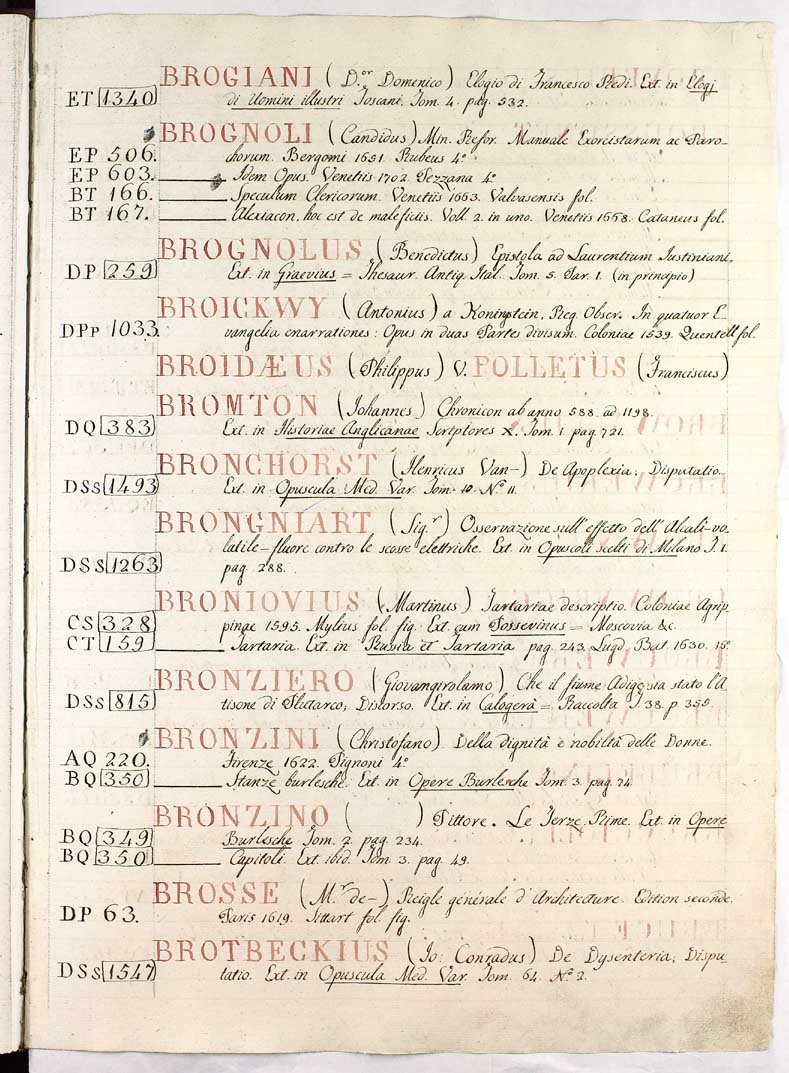 BROGIANI (D.or Domenico) Elogio di Francesco Redi. Ext. in Elogj
ET 1340 di Uomini illustri Toscani. Tom. 4. pag. 532.
BROGNOLI (Candidus) Min. Refor. Manuale Exorcistarum ac Paro-
EP 506. chorum. Bergomi 1651. Rubeus 4°
EP 603. Idem Opus. Venetiis 1702. Pezzana 4°
BT 166. Speculum Clericorum. Venetiis 1663. Valvasensis fol.
BT 167. Alexiacon, hoc est de maleficiis. Voll. 2. in uno. Venetiis 1668. Cataneus fol.
BROGNOLUS (Benedictus) Epistola ad Laurentium Justiniani,
DP 259 Ext. in Graevius = Thesaur. Antiq. Ital. Tom. 5. Par. 1. (in principio)
BROICKWY (Antonius) a Koninstein, Reg. Obser. In quatuor E-
DPp 1033. vangelia enarrationes: Opus in duas Partes divisum. Coloniae 1539. Quentell fol.
BROIDÆUS (Philippus) V. POLLETUS (Franciscus)
BROMTON (Johannes) Chronicon ab anno 588. ad 1198.
DQ 383 Ext. in Historiae Anglicanae Scriptores X. Tom. 1. pag. 721.
BRONCHORST (Henricus Van-) De Apoplexia; Disputatio.
DSs 1493 Ext. in Opuscula Med. Var. Tom. 10. N.° 11.
BRONGNIART (Sig.r) Osservazione sull' effetto dell' Alcali-vo-
latile-fluore contro le scosse elettriche. Ext. in Opuscoli scelti di Milano T. 1.
DSs 1263 pag. 288.
BRONIOVIUS (Martinus) Tartariae descriptio. Coloniae Agrip-
CS 328 pinae 1595. Mylius fol. fig. Ext. cum Possevinus = Moscovia &c.
CT 159 Tartaria. Ext. in Russia et Tartaria pag. 243. Lugd. Bat. 1630. 16°
BRONZIERO (Giovangirolamo) Che il fiume Adige sia stato l'A-
DSs 815 tisone di Plutarco; Discorso. Ext. in Calogerà = Raccolta T. 38. p. 355.
BRONZINI (Christofano). Della dignità e nobiltà delle Donne.
AQ 220. Firenze 1622. Pignoni 4°
BQ 350 Stanze burlesche. Ext. in Opere Burlesche Tom. 3. pag. 74.
BRONZINO ( ) Pittore. Le Terze Rime. Ext. in Opere
BQ 349 Burlesche Tom. 2. pag. 234.
BQ 350 Capitoli. Ext. ibid. Tom. 3. pag. 49.
BROSSE (M.r de-) Reigle générale d' Architecture. Edition seconde.
DP 63. Paris 1619. Pittart fol. fig.
BROTBECKIUS (Jo: Conradus) De Dysenteria; Dispu-
DSs 1547 tatio. Ext. in Opuscula Med. Var. Tom. 64. N.° 2.